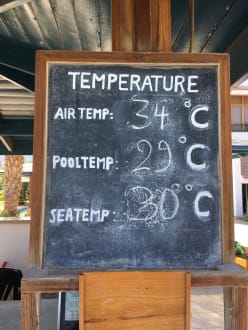 TEMPERATURE
AIR TEMP: 34°C
POOLTEMP: 29°C
SEATEMP: 30°C